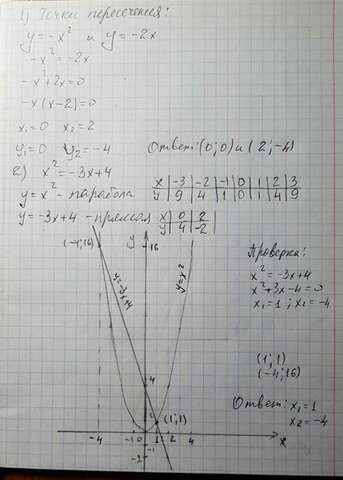 1) Точки пересечения:
y=-x² и y=-2x
-x²=-2x
-x²+2x=0
-x(x-2)=0
x₁=0 x₂=2
y₁=0 y₂=-4 Ответ: (0;0) и (2;-4)
2) x²=-3x+4
y=x²-парабола
x -3 -2 -1 0 1 2 3
y 9 4 1 0 1 4 9
y=-3x+4-прямая
x 0 2
y 4 -2
(-4;16)
y
16
y=-3x+4
y=x²
4
(1;1)
-4 -1 0 1 2 4 x
-1
-2
Проверка:
x²=-3x+4
x²+3x-4=0
x₁=1; x₂=-4
(1;1)
(-4;16)
Ответ: x₁=1
x₂=-4